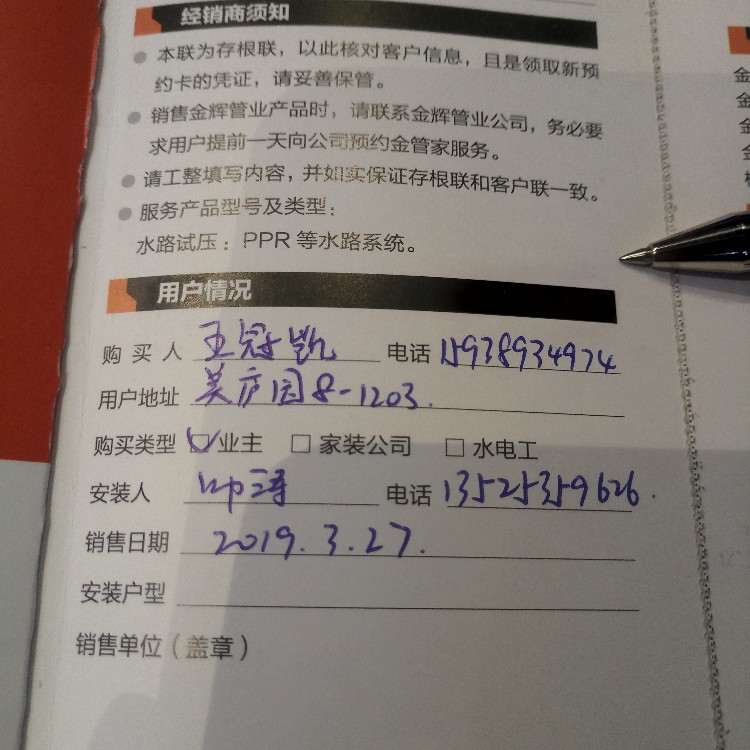 经销商须知
本联为存根联，以此核对客户信息，且是领取新预
约卡的凭证，请妥善保管。
销售金辉管业产品时，请联系金辉管业公司，务必要
求用户提前一天向公司预约金管家服务。
请工整填写内容，并如实保证存根联和客户联一致。
服务产品型号及类型：
水路试压：PPR 等水路系统。
用户情况
购买人 王冠凯 电话 15938934974
用户地址 美庐园8-1203.
购买类型 ☑业主 □家装公司 □水电工
安装人 帅涛 电话 13525359626.
销售日期 2019.3.27.
安装户型
销售单位（盖章）
金
金
金